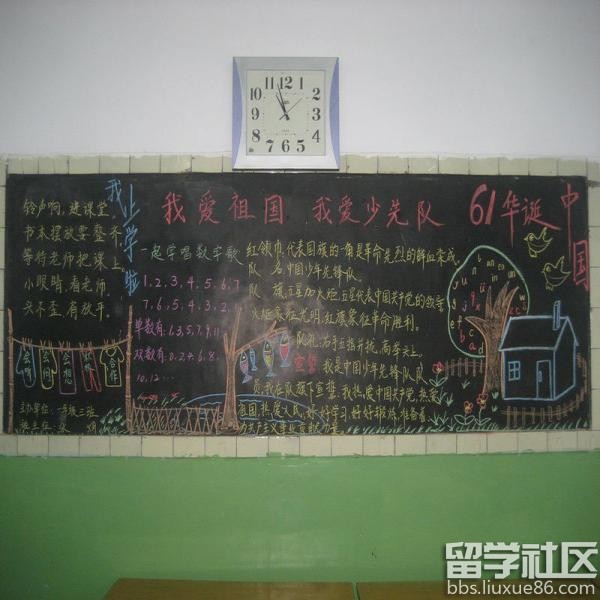 我爱祖国 我爱少先队 61华诞
中国
我上学啦
铃声响,进课堂,
书本摆放要整齐,
等待老师把课上。
小眼睛,看老师,
头不歪,有放平。
会听
会问
会想
合作
主办单位:一年级三班
一起学唱数字歌
1,2,3,4,5,6,7
7,6,5,4,3,2,
单数有:1,3,5,7,9,11
双数有:0,2,4,6,8,
10,12…
红领巾,代表国旗的一角是革命先烈的鲜血染成,
队 名中国少年先锋队
队 旗,五星加火炬,五星代表中国共产党的领导
火炬象征光明,红旗象征革命胜利。
队礼:右手五指并拢,高举头上。
宣誓
我是中国少年先锋队队
员,我在队旗下宣誓:我热爱中国共产党,
祖国,热爱人民,好好学习,好好锻炼,准备着,
为共产主义事业贡献力量
留学社区
bbs.liuxue86.com